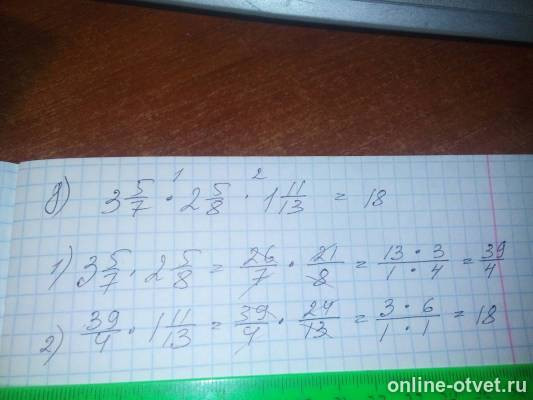 д) 3 5/7 · 2 5/8 · 1 11/13 = 18
1 2
1) 3 5/7 · 2 5/8 = 26/7 · 21/8 = 13 · 3/1 · 4 = 39/4
2) 39/4 · 1 11/13 = 39/4 · 24/13 = 3 · 6/1 · 1 = 18
online-otvet.ru